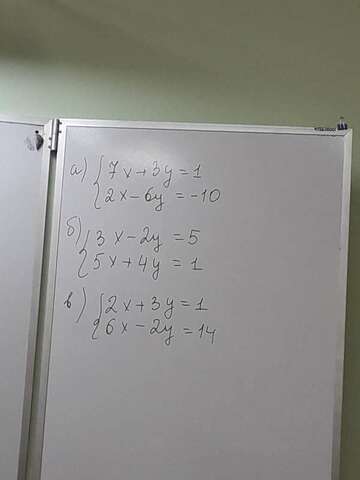 а) { 7x+3y=1
2x-6y=-10
б) { 3x-2y=5
5x+4y=1
в) { 2x+3y=1
6x-2y=14